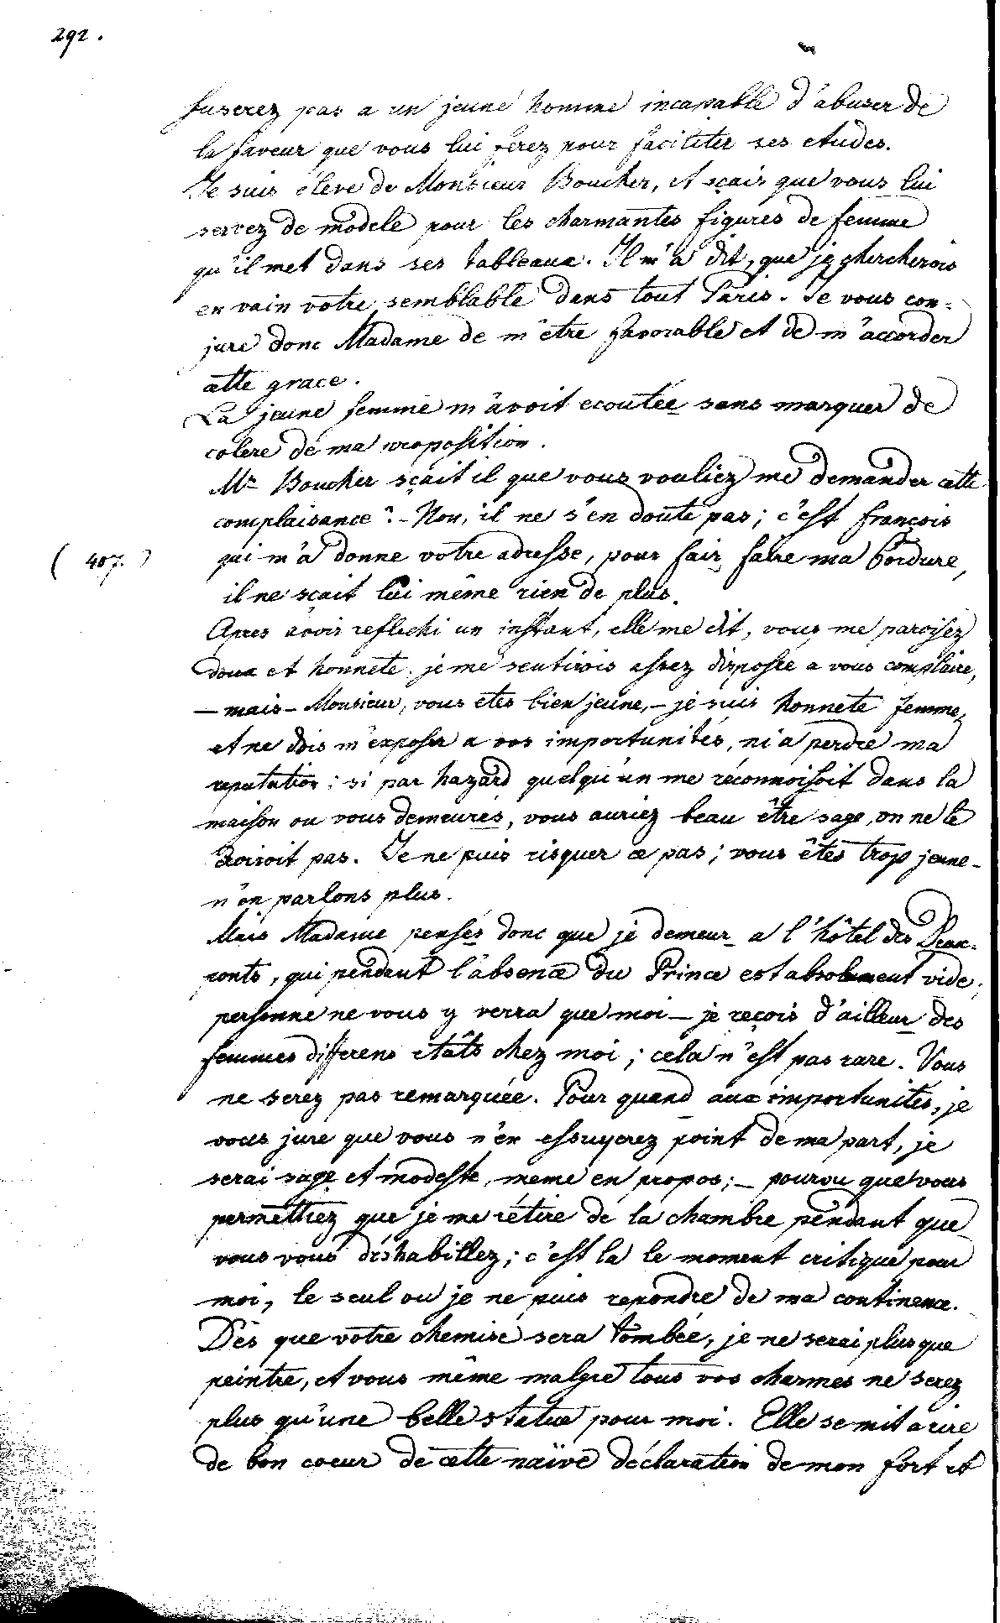 292.
fuserez pas a un jeune homme incapable d'abuser de
la faveur que vous lui ferez pour faciliter ses etudes.
Je suis élève de Monsieur Boucher, et sçais que vous lui
servez de modele pour les charmantes figures de femme
qu'il met dans ses tableaux. Il m'a dit, que je chercherois
en vain votre semblable dans tout Paris. Je vous con-
jure donc Madame de m'être favorable et de m'accorder
cette grace.
La jeune femme m'avoit ecoutée sans marquer de
colere de ma proposition.
Mr Boucher sçait il que vous vouliez me demander cette
complaisance? - Non, il ne s'en doute pas; c'est françois
(407.) qui m'a donne votre adresse, pour fair faire ma bordure,
il ne sçait lui même rien de plus.
Apres avoir reflechi un instant, elle me dit, vous me paroisez
doux et honnete. je me sentirois assez disposée a vous complaire,
— mais — Monsieur, vous etes bien jeune, — je suis honnete femme,
et ne dois m'exposer a vos importunités, ni a perdre ma
reputation; si par hazard quelqu'un me réconnoisoit dans la
maison ou vous demeurés, vous auriez beau être sage, on ne le
croiroit pas. Je ne puis risquer ce pas; vous êtes trop jeune -
n'en parlons plus.
Mais Madame pensés donc que je demeur a l'hôtel des Deux-
ponts, qui pendant l'absence du Prince est absolument vide;
personne ne vous y verra que moi — je reçois d'ailleur des
femmes differens etâts chez moi; cela n'est pas rare. Vous
ne serez pas remarquée. Pour quand aux importunités, je
vous jure que vous n'en essuyerez point de ma part, je
serai sage et modeste, meme en propos; — pourvu que vous
permettiez que je me rétire de la chambre pendant que
vous vous déshabillez; c'est la le moment critique pour
moi, le seul ou je ne puis repondre de ma continence.
Dès que votre chemise sera tombée, je ne serai plus que
peintre, et vous même malgré tous vos charmes ne serez
plus qu'une belle statue pour moi. Elle se mit a rire
de bon coeur de cette naïve déclaration de mon fort et